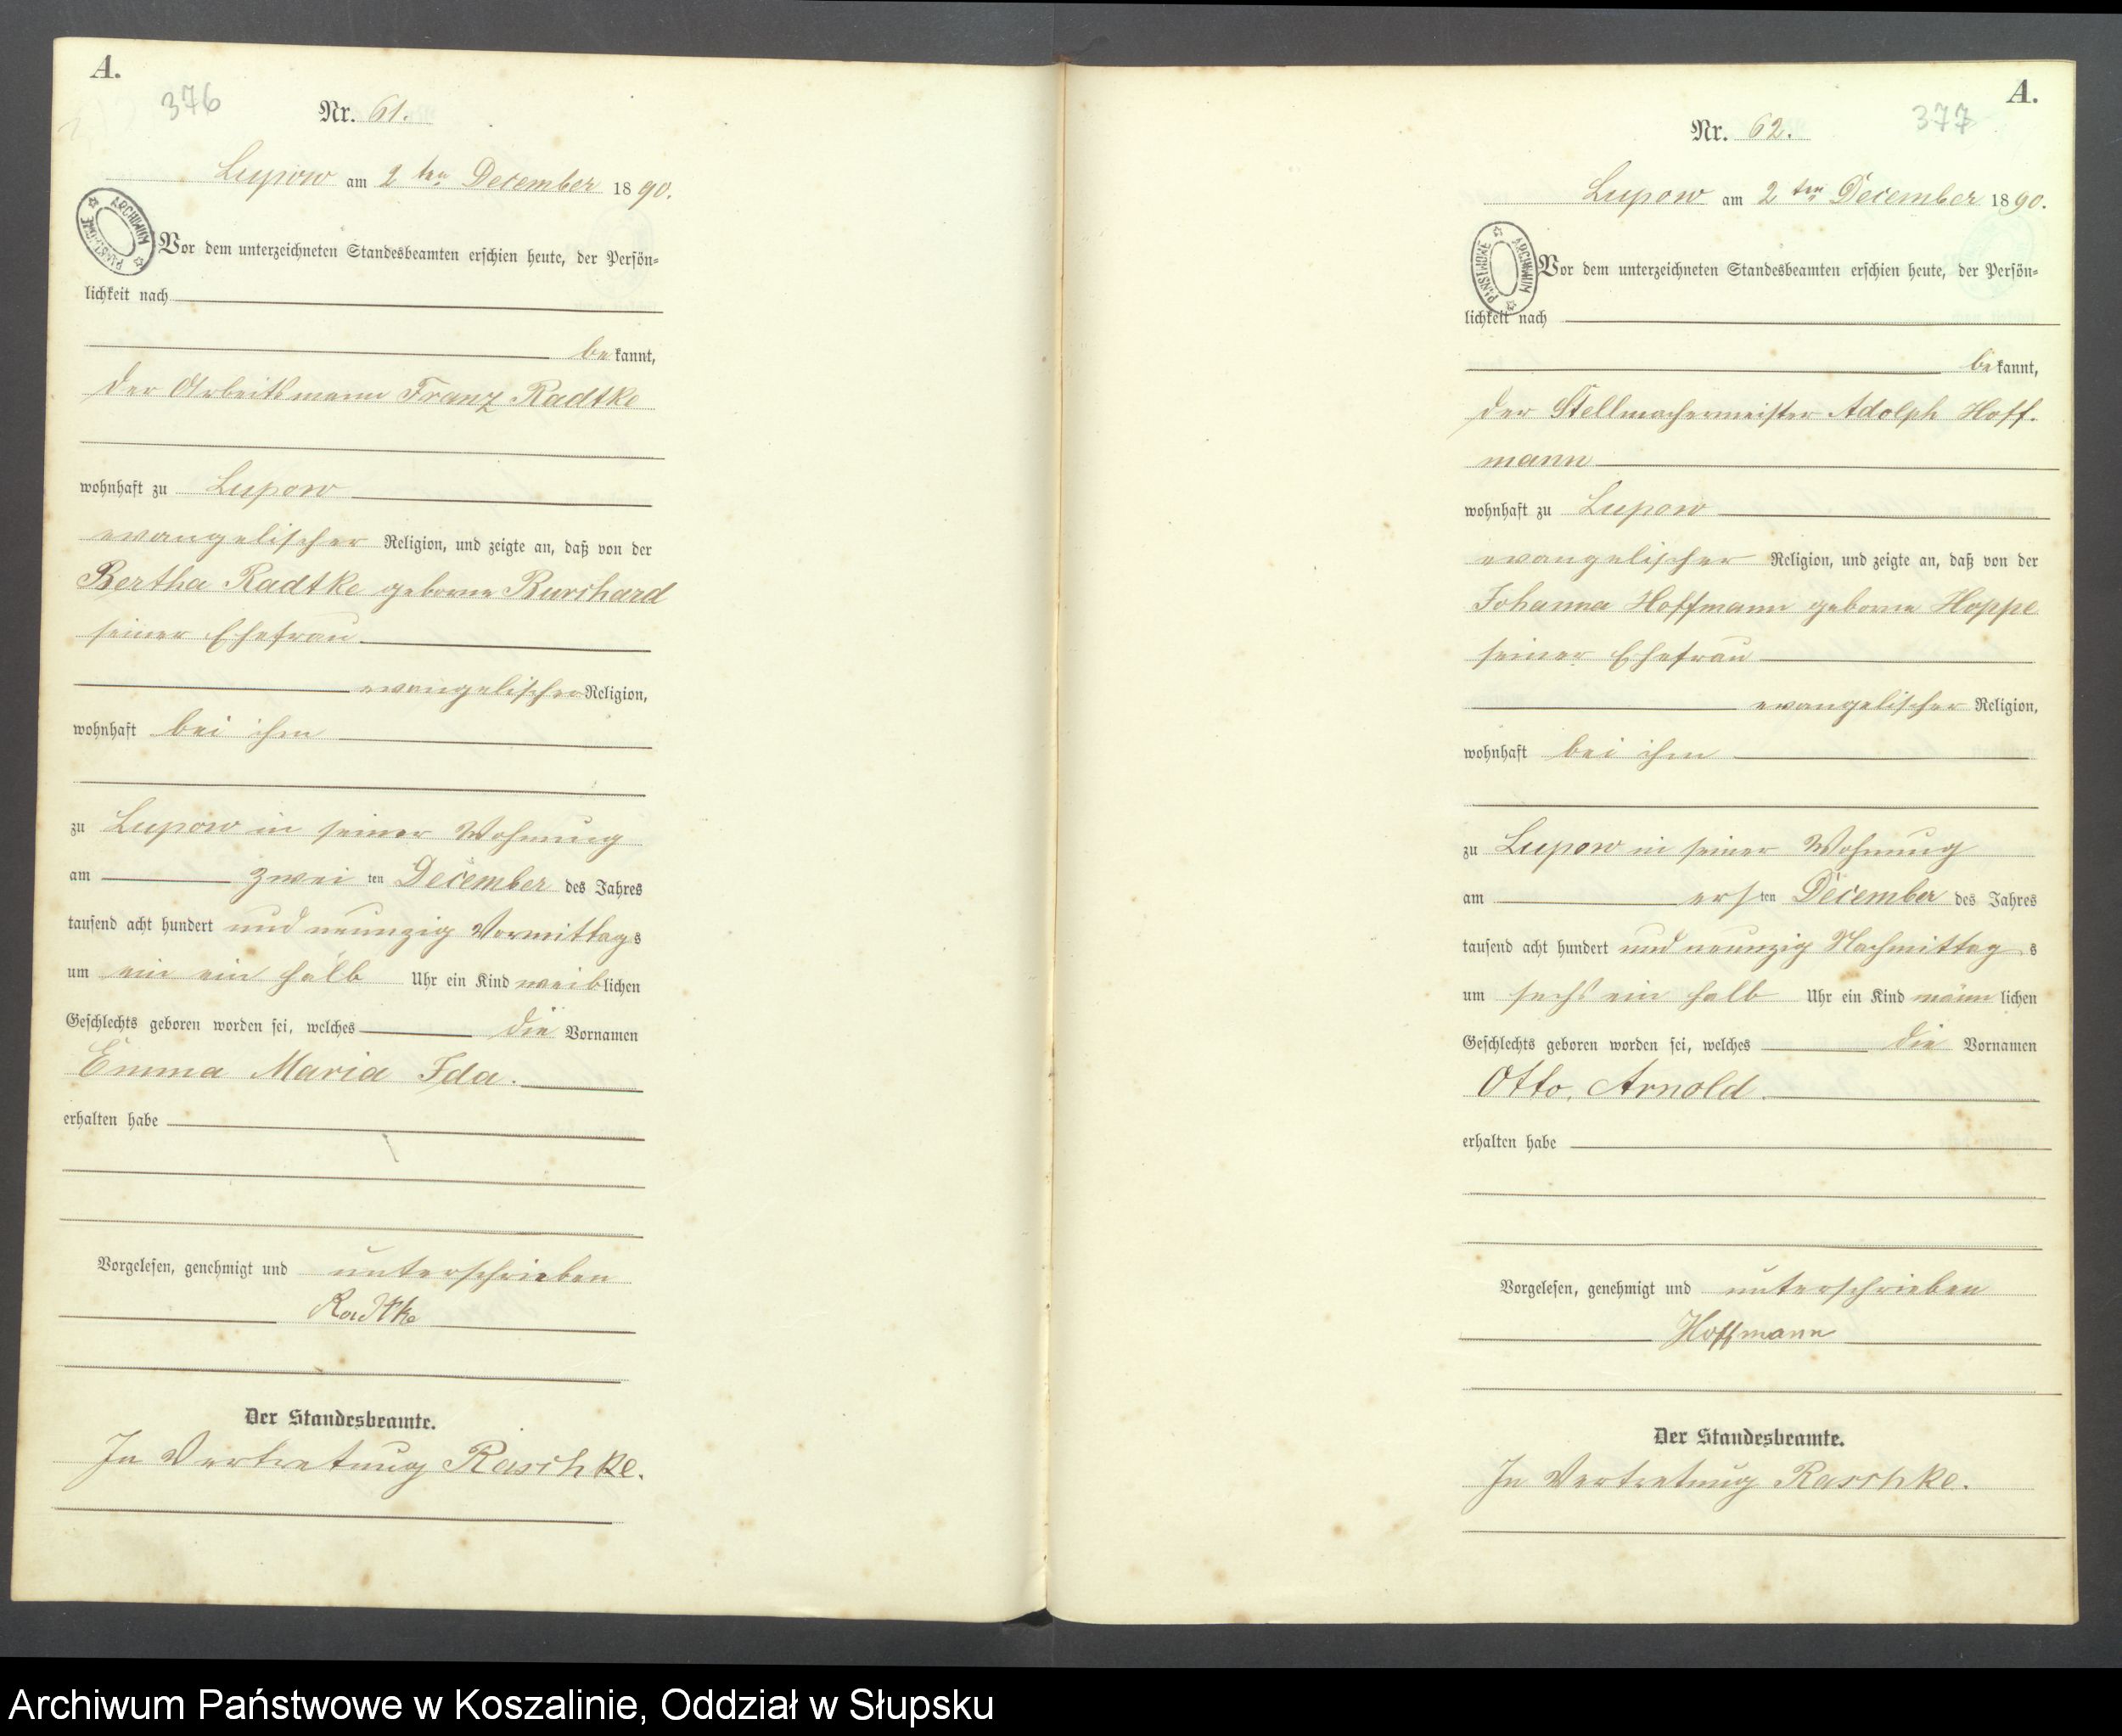 A.
376
Nr. 61.
Lupow am 2 ten December 1890.
ARCHIWUM PAŃSTWOWE
Vor dem unterzeichneten Standesbeamten erschien heute, der Persön-
lichkeit nach
bekannt,
der Arbeitsmann Franz Radtke
wohnhaft zu Lupow
evangelischer Religion, und zeigte an, daß von der
Bertha Radtke geborne Burchard
seiner Ehefrau
evangelischer Religion,
wohnhaft bei ihm
zu Lupow in seiner Wohnung
am zwei ten December des Jahres
tausend acht hundert und neunzig Vormittags
um ein ein halb Uhr ein Kind weiblichen
Geschlechts geboren worden sei, welches die Vornamen
Emma Maria Ida.
erhalten habe
Vorgelesen, genehmigt und unterschrieben
Radtke
Der Standesbeamte.
In Vertretung Raschke.
A.
377
Nr. 62.
Lupow am 2 ten December 1890.
ARCHIWUM PAŃSTWOWE
Vor dem unterzeichneten Standesbeamten erschien heute, der Persön-
lichkeit nach
bekannt,
der Stellmachermeister Adolph Hoff-
mann
wohnhaft zu Lupow
evangelischer Religion, und zeigte an, daß von der
Johanna Hoffmann geborne Hoppe
seiner Ehefrau
evangelischer Religion,
wohnhaft bei ihm
zu Lupow in seiner Wohnung
am ersten December des Jahres
tausend acht hundert und neunzig Nachmittags
um sechs ein halb Uhr ein Kind männlichen
Geschlechts geboren worden sei, welches die Vornamen
Otto, Arnold.
erhalten habe
Vorgelesen, genehmigt und unterschrieben
Hoffmann
Der Standesbeamte.
In Vertretung Raschke.
Archiwum Państwowe w Koszalinie, Oddział w Słupsku